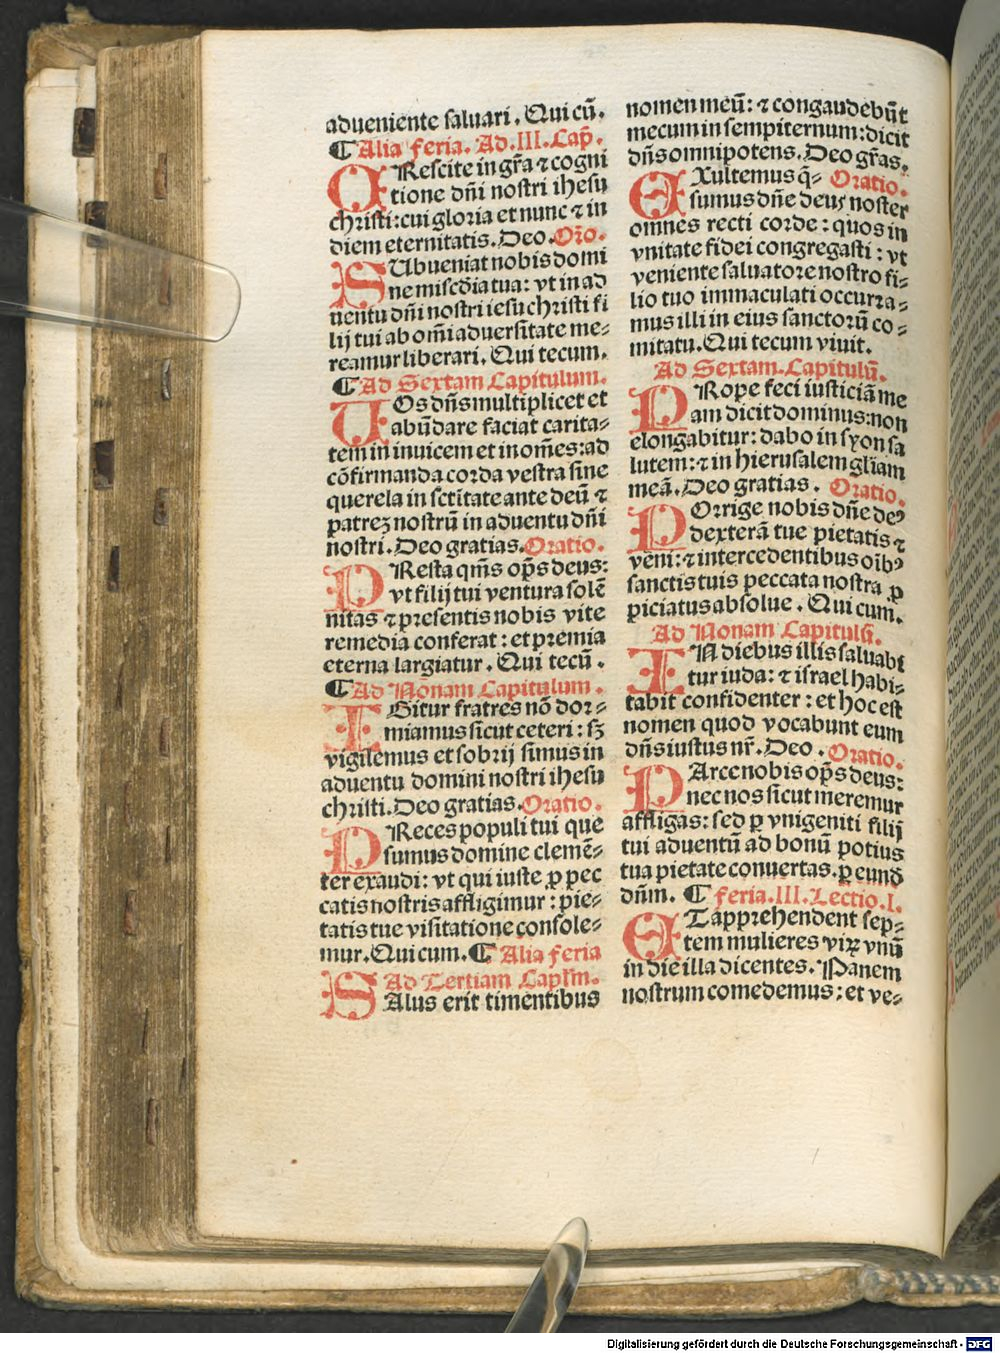 adueniente saluari. Qui cū.
¶ Alia feria. Ad. III. Cap̄.
CRescite in gr̄a ⁊ cogni
tione dn̄i nostri ihesu
christi: cui gloria et nunc ⁊ in
diem eternitatis. Deo. Or̄o.
SUbueniat nobis domi
ne misc̄dia tua: vt in ad
uentu dn̄i nostri iesu christi fi
lij tui ab om̄i aduersitate me-
reamur liberari. Qui tecum.
¶ Ad Sextam Capitulum.
UOs dn̄s multiplicet et
abūdare faciat carita-
tem in inuicem et in om̄es: ad
cōfirmanda corda vestra sine
querela in sctītate ante deū ⁊
patrē nostrū in aduentu dn̄i
nostri. Deo gratias. Oratio.
PResta qm̄s op̄s deus:
vt filij tui ventura solē
nitas ⁊ presentis nobis vite
remedia conferat: et premia
eterna largiatur. Qui tecū.
¶ Ad Nonam Capitulum.
IGitur fratres nō dor-
miamus sicut ceteri: sꝫ
vigilemus et sobrij simus in
aduentu domini nostri ihesu
christi. Deo gratias. Oratio.
PReces populi tui que
sumus domine clemē-
ter exaudi: vt qui iuste ꝓ pec
catis nostris affligimur: pie-
tatis tue visitatione console-
mur. Qui cum. ¶ Alia feria
Ad Tertiam Caplm̄.
SAlus erit timentibus
nomen meū: ⁊ congaudebūt
mecum in sempiternum: dicit
dn̄s omnipotens. Deo gr̄as.
EXultemus q̄- Oratio.
sumus dn̄e deus noster
omnes recti corde: quos in
vnitate fidei congregasti: vt
veniente saluatore nostro fi-
lio tuo immaculati occurra-
mus illi in eius sanctorū co-
mitatu. Qui tecum viuit.
Ad Sextam. Capitulū.
PRope feci iusticiā me
am dicit dominus: non
elongabitur: dabo in syon sa
lutem: ⁊ in hierusalem gl̄iam
meā. Deo gratias. Oratio.
POrrige nobis dn̄e deꝰ
dexterā tue pietatis ⁊
veni: ⁊ intercedentibus oībꝰ
sanctis tuis peccata nostra ꝓ
piciatus absolue. Qui cum.
Ad Nonam Capitulū.
IN diebus illis saluabi
tur iuda: ⁊ israel habi-
tabit confidenter: et hoc est
nomen quod vocabunt eum
dn̄s iustus nr̄. Deo. Oratio.
PArce nobis op̄s deus:
nec nos sicut meremur
affligas: sed ꝑ vnigeniti filij
tui aduentū ad bonū potius
tua pietate conuertas. ꝑ eund
dn̄m. ¶ feria. III. Lectio. I.
ETapprehendent sep-
tem mulieres viꝝ vnū
in die illa dicentes. Panem
nostrum comedemus: et ve-
Digitalisierung gefördert durch die Deutsche Forschungsgemeinschaft - DFG